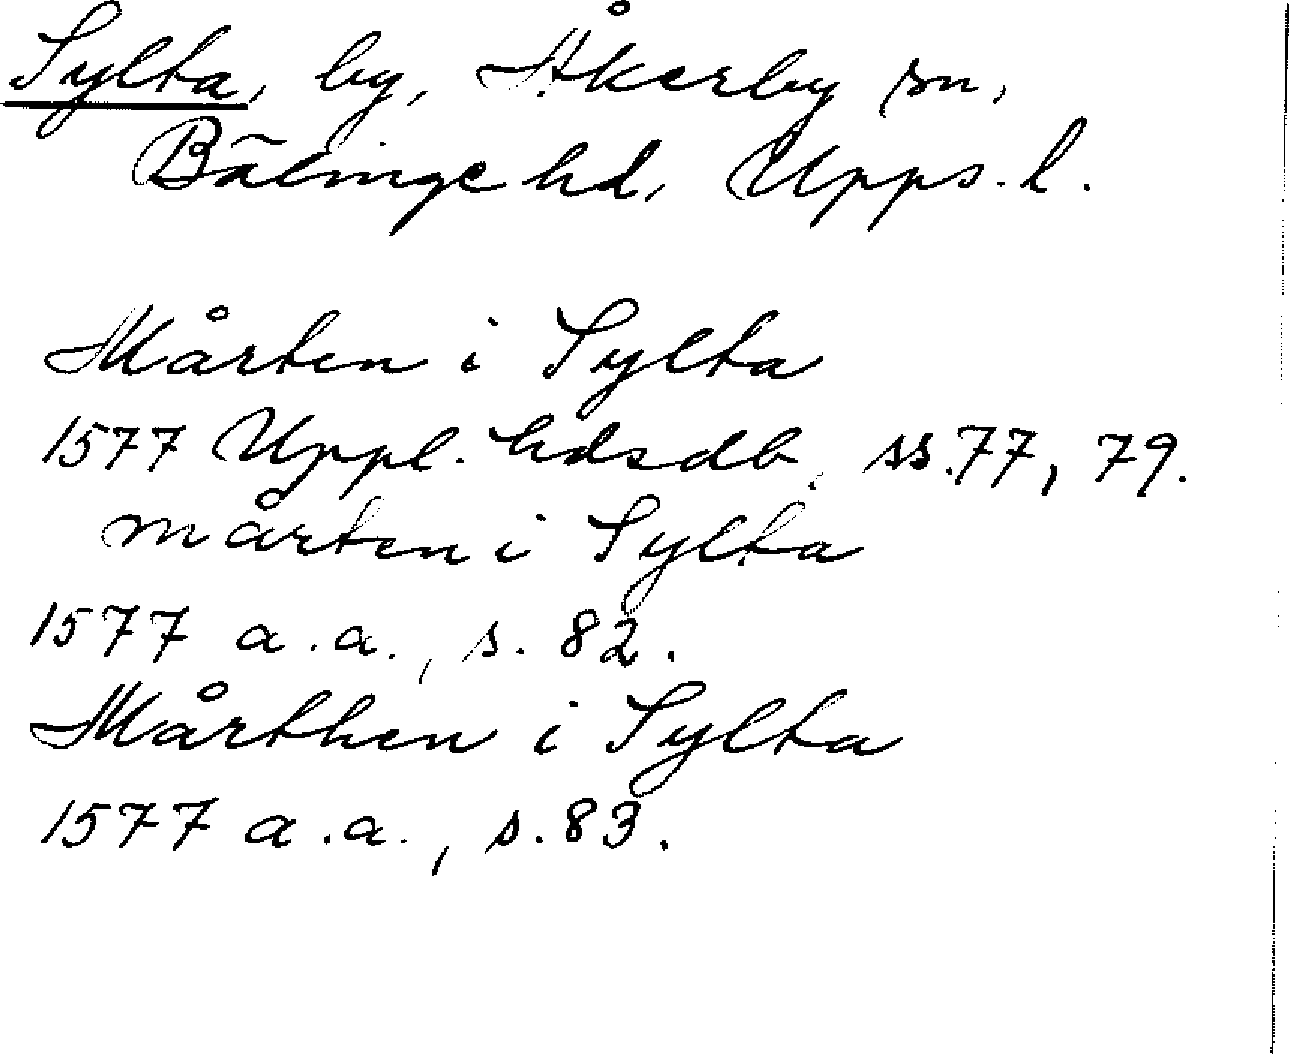 Sylta, by, Åkerby sn,
Bälinge hd, Upps. l.
Mårten i Sylta
1577 Uppl. hdsdb, ss. 77, 79.
mårten i Sylta
1577 a.a., s. 82.
Mårthen i Sylta
1577 a.a., s. 83.